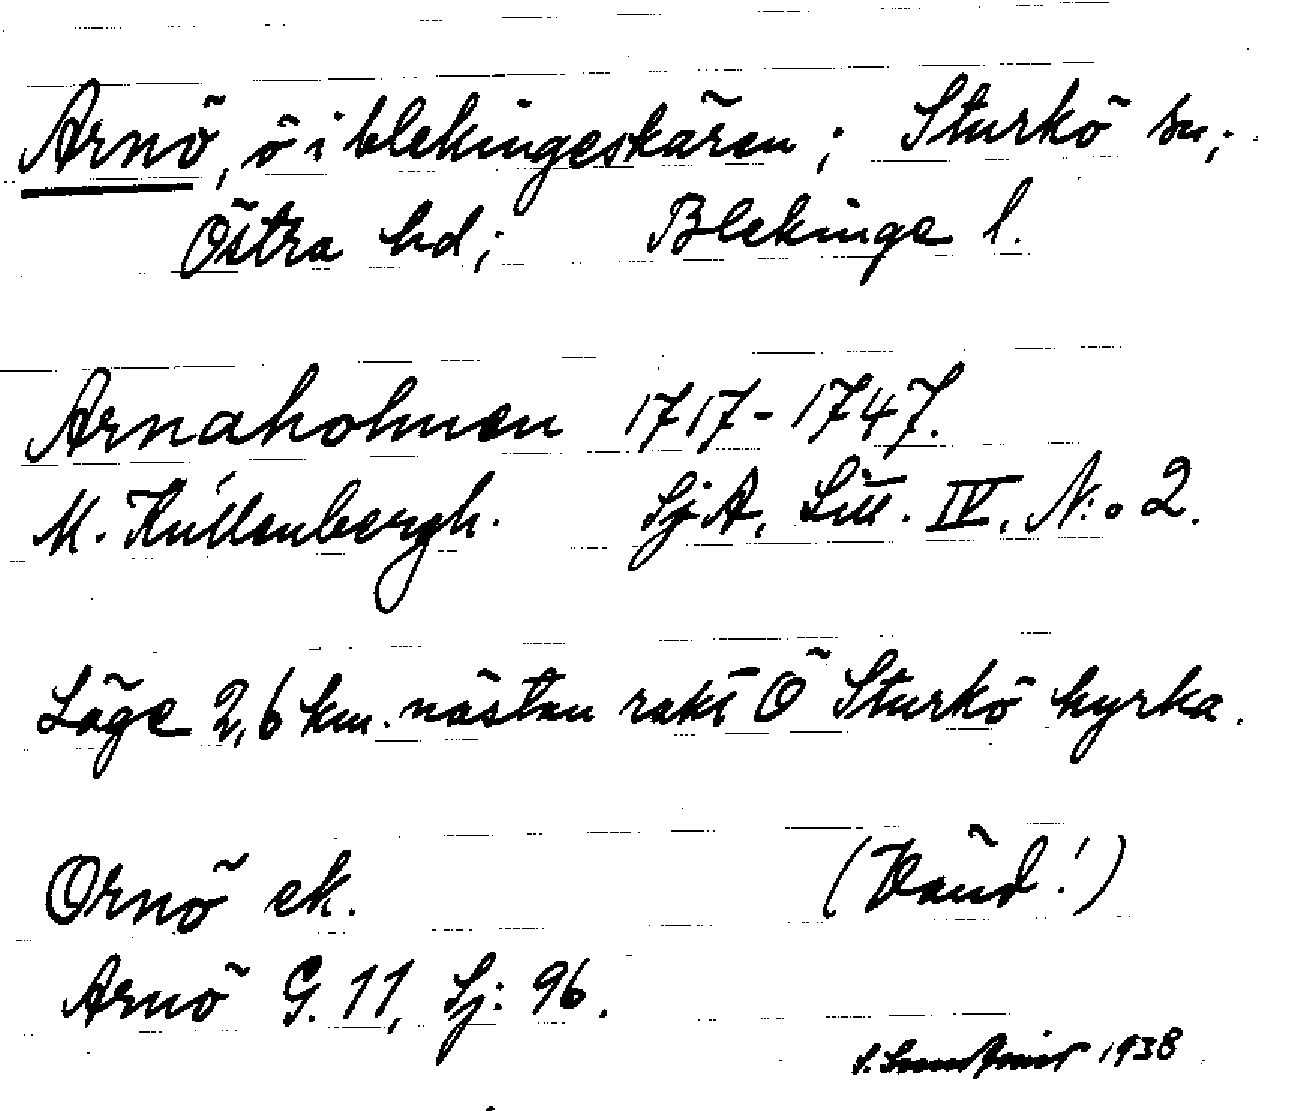 Arnö, ö i blekingeskären; Sturkö sn;
Östra hd; Blekinge l.
Arnaholmen 1717-1747.
M. Kullenbergh. SjA, Litt. IV, N:o 2.
Läge 2,6 km. nästan rakt Ö Sturkö kyrka.
Ornö ek. (Vänd!)
Arnö G. 11, Sj: 96.
1938